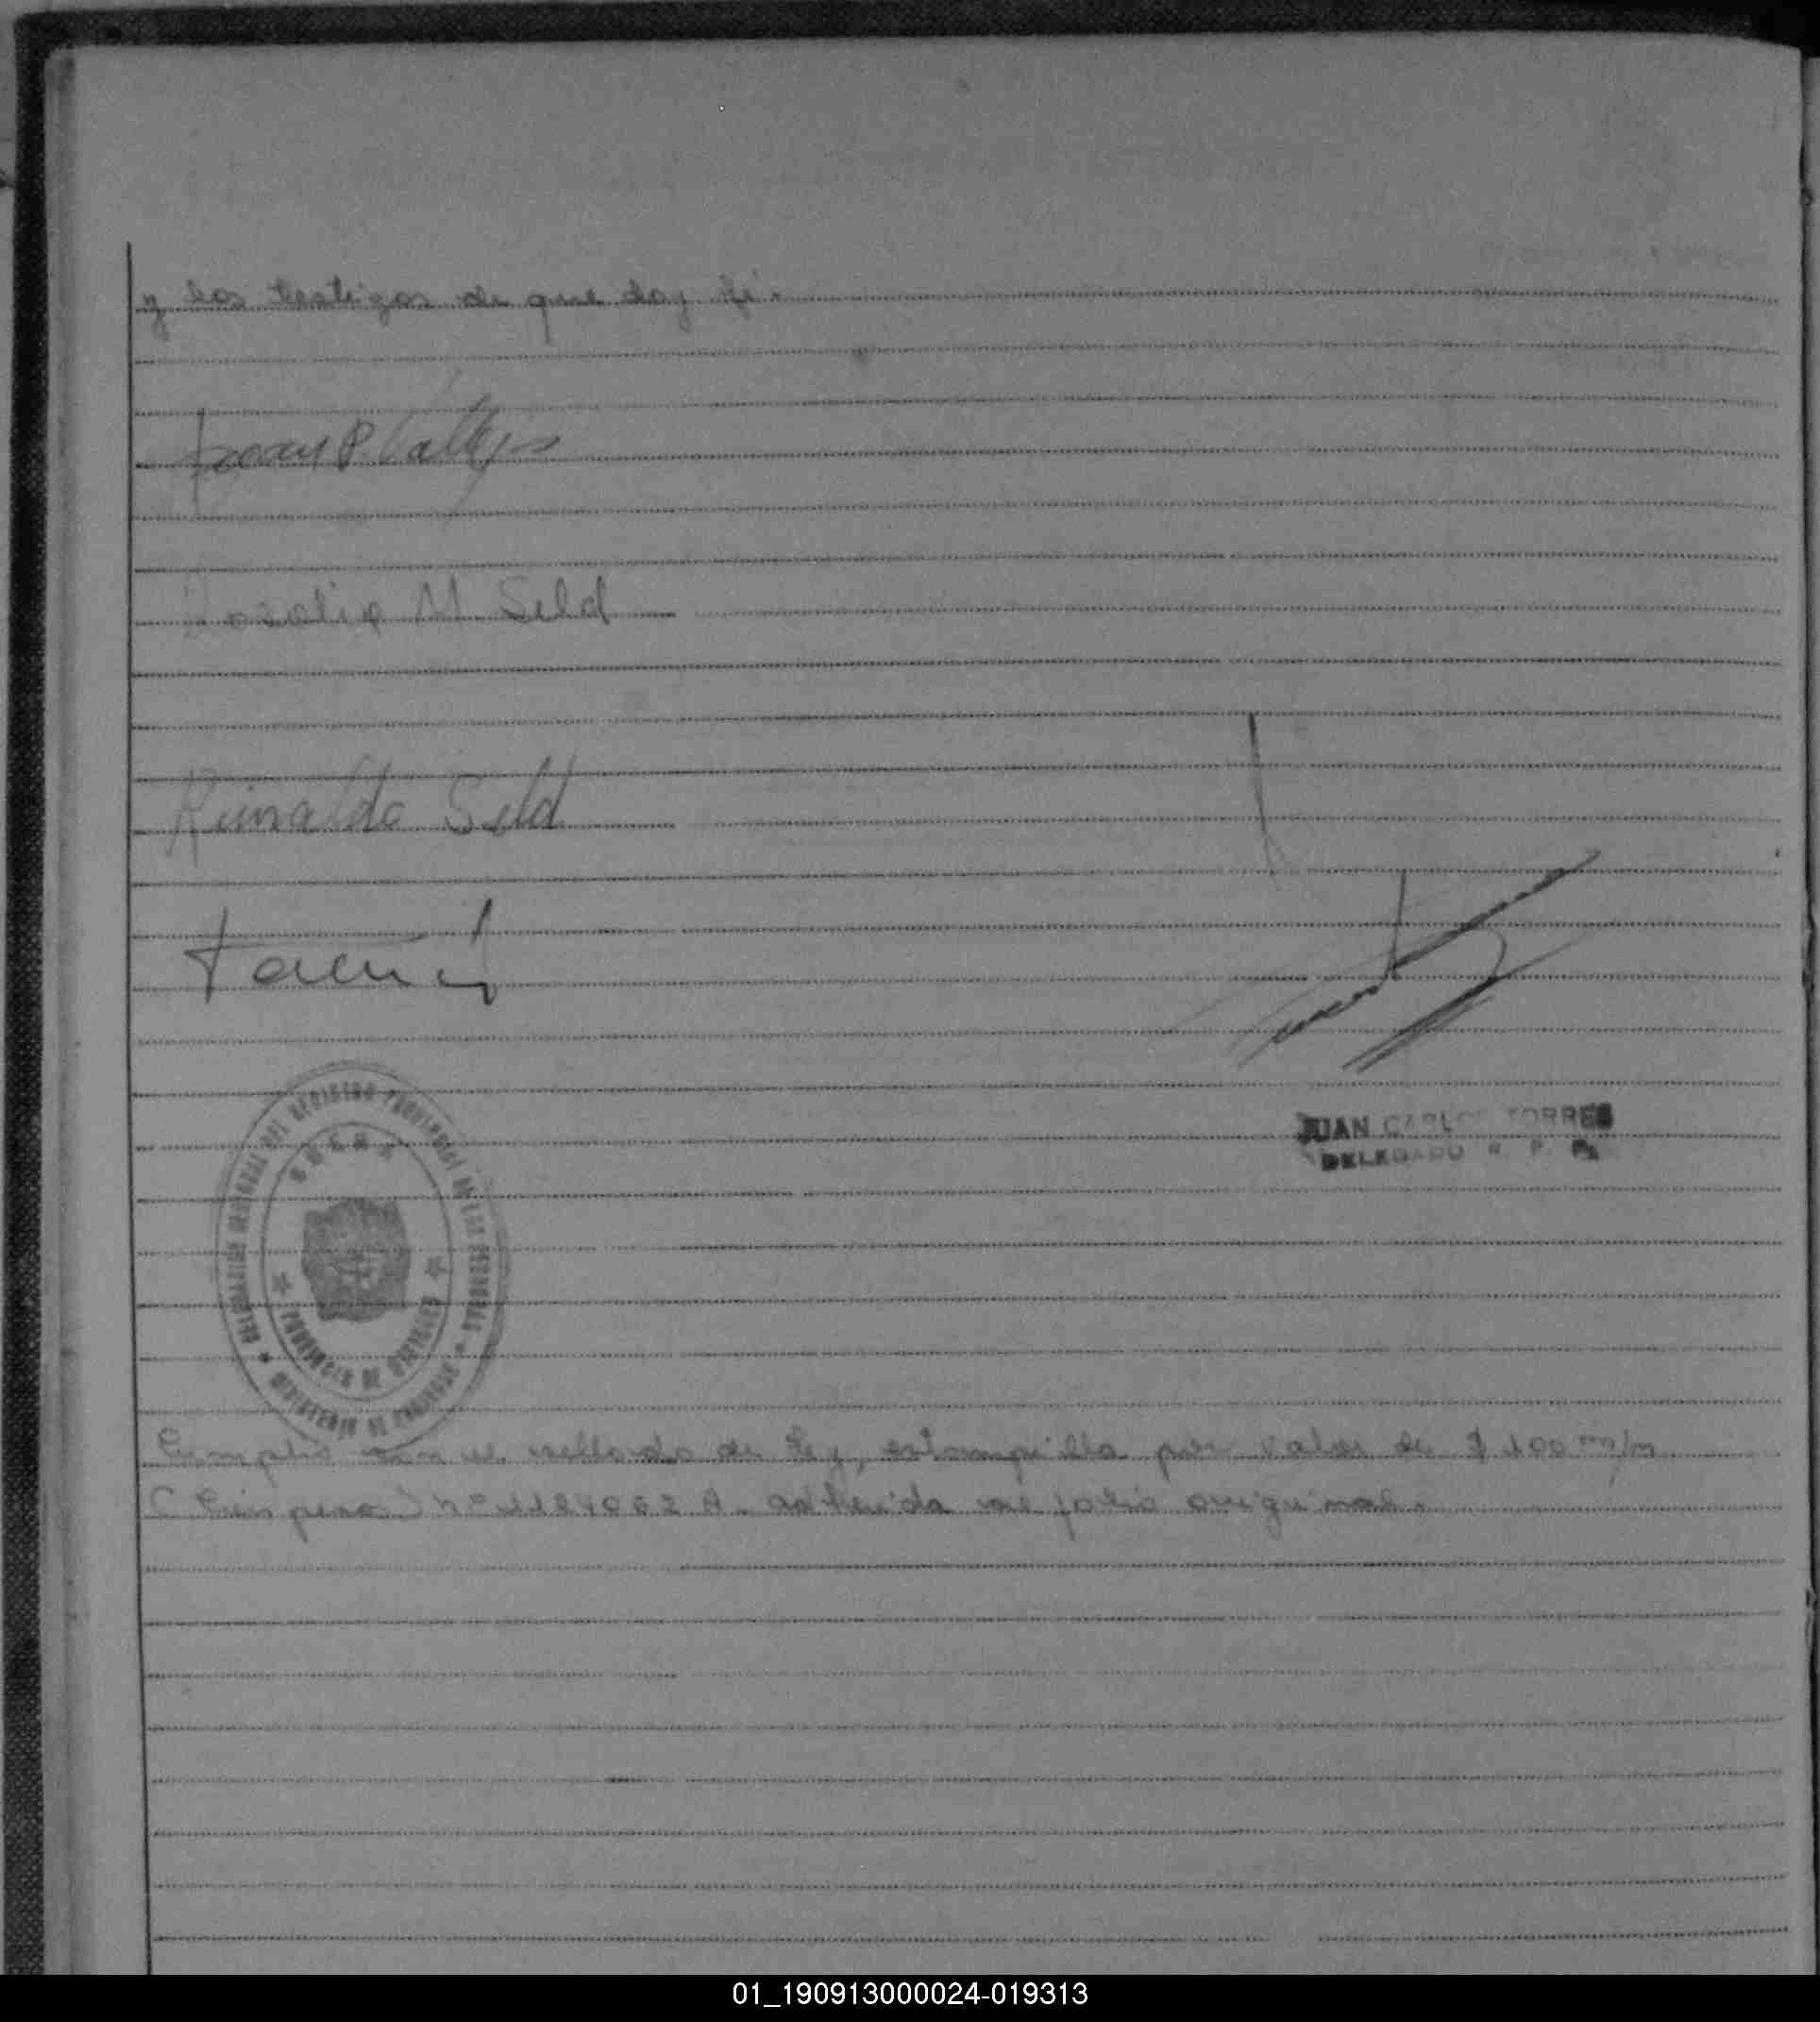 y los testigos de que doy fé.
Juan P. Vallejos
Rosalia M. Seld
Reinaldo Seld
JUAN CARLOS TORRES
DELEGADO R. P. P.
DEL REGISTRO PROVINCIAL DE LAS PERSONAS
PROVINCIA DE
MINISTERIO DE
Cumplio con el sellado de Ley, estampilla por valor de $ 100 m/m
(Cien pesos) nº A. adherida al folio original.
01_190913000024-019313